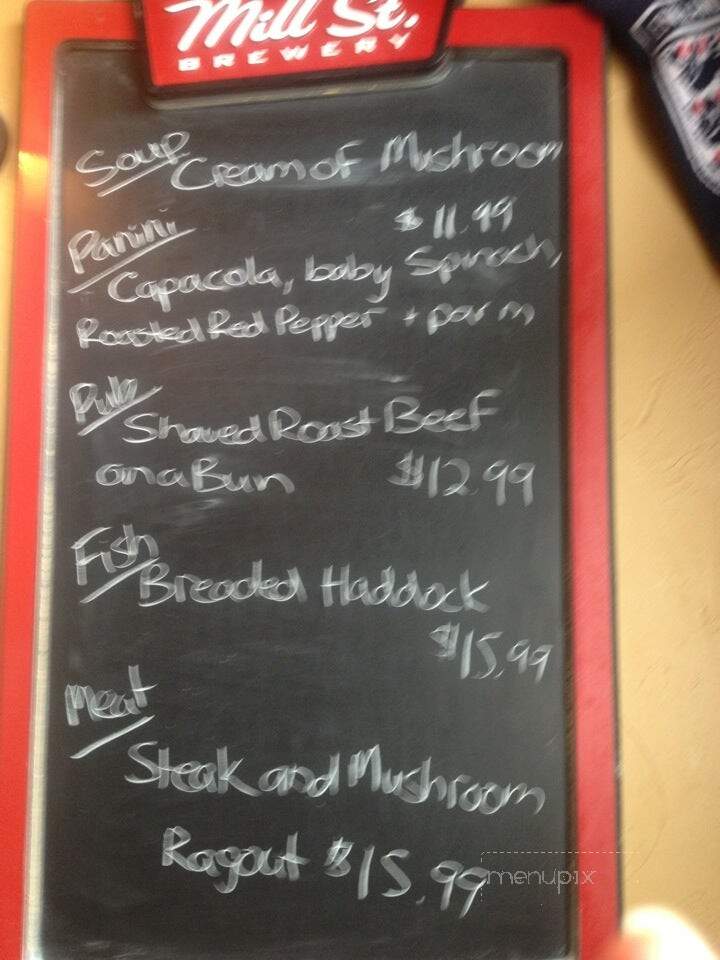 Mill St.
BREWERY
Soup Cream of Mushroom
Panini $11.99
Capacola, baby Spinach,
Roasted Red Pepper + parm
Pub
Shaved Roast Beef
on a Bun $12.99
Fish
Breaded Haddock
$15.99
Meat
Steak and Mushroom
Ragout $15.99
menupix